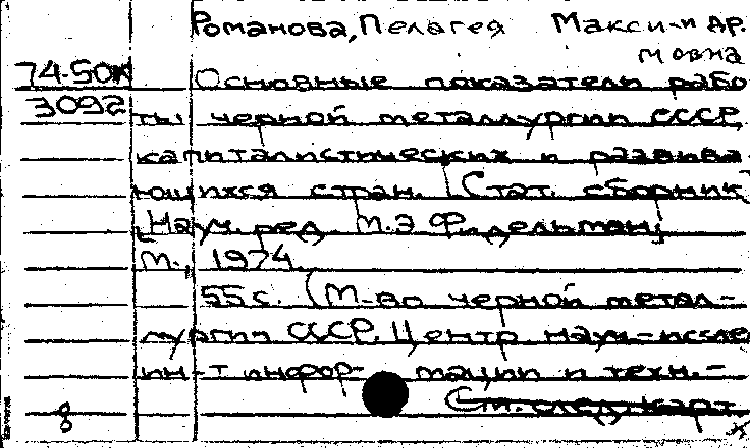 Романова, Пелагея Макси- и др.
мовна
74-50к Основные показатели рабо
3092 ты черной металлургии СССР,
капиталистических и развива
ющихся стран. [Стат. сборник]
[Науч. ред. М.Э. Фидельман].
М., 1974.
55 с. (М-во черной метал-
лургии СССР. Центр. науч.-иссле
ин-т информации и техн.-
8 См. след. карт.